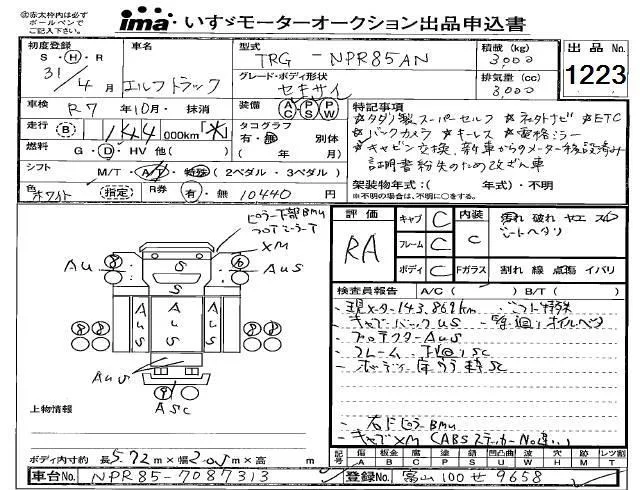 ima いすゞモーターオークション出品申込書
㊟赤太枠内は必ず
ボールペンで
ご記入下さい。
初度登録 S・Ⓗ・R 31/4月
車名 エルフトラック
型式 TRG - NPR85AN
グレード・ボディ形状
積載 (kg) 3,000
排気量 (cc) 3,000
出品 No. 1223
車検 R7年10月・抹消
装備 AC PS PW
走行 Ⓑ 144 000km
燃料 G・Ⓓ・HV 他( )
タコグラフ 有・無 別体
( 年 月)
シフト M/T・A/T・特殊(2ペダル・3ペダル)
色 ホワイト (指定) R券 有・無 10440円
特記事項
☆タダノ製スーパーセルフ ☆ネットナビ ☆ETC
☆バックカメラ ☆キーレス ☆電格ミラー
☆キャビン交換、新車からのメーター移設済み
証明書紛失のため改ざん車
架装物年式:( 年式)・不明
※不明の場合は、不明に○をする。
評価 RA
キャブ C
フレーム C
ボディ C
内装 C
汚れ 破れ ヤエ スレ
シートヘタリ
Fガラス 割れ 線 点傷 イバリ
検査員報告 A/C( ) B/T( )
現メーター143,869km
キャブバックUS
プロテクターAUS
フレーム・下回りSC
右ドピラーBMU
キャブXM (ABSステッカーNo違い)
ピラー下部BMU
XM
AU
AUS
AUS
AUS
AUS
S
S
AUS
ASC
上物情報
ボディ内寸約 長5.72m×幅2.05m×高 m
記号 傷 板金 腐 塗 錆 凹凸曲 波 穴 欠 外 レツ割
A B C P S U W H M T
車台No. NPR85-7087313
登録No. 富山100せ9658